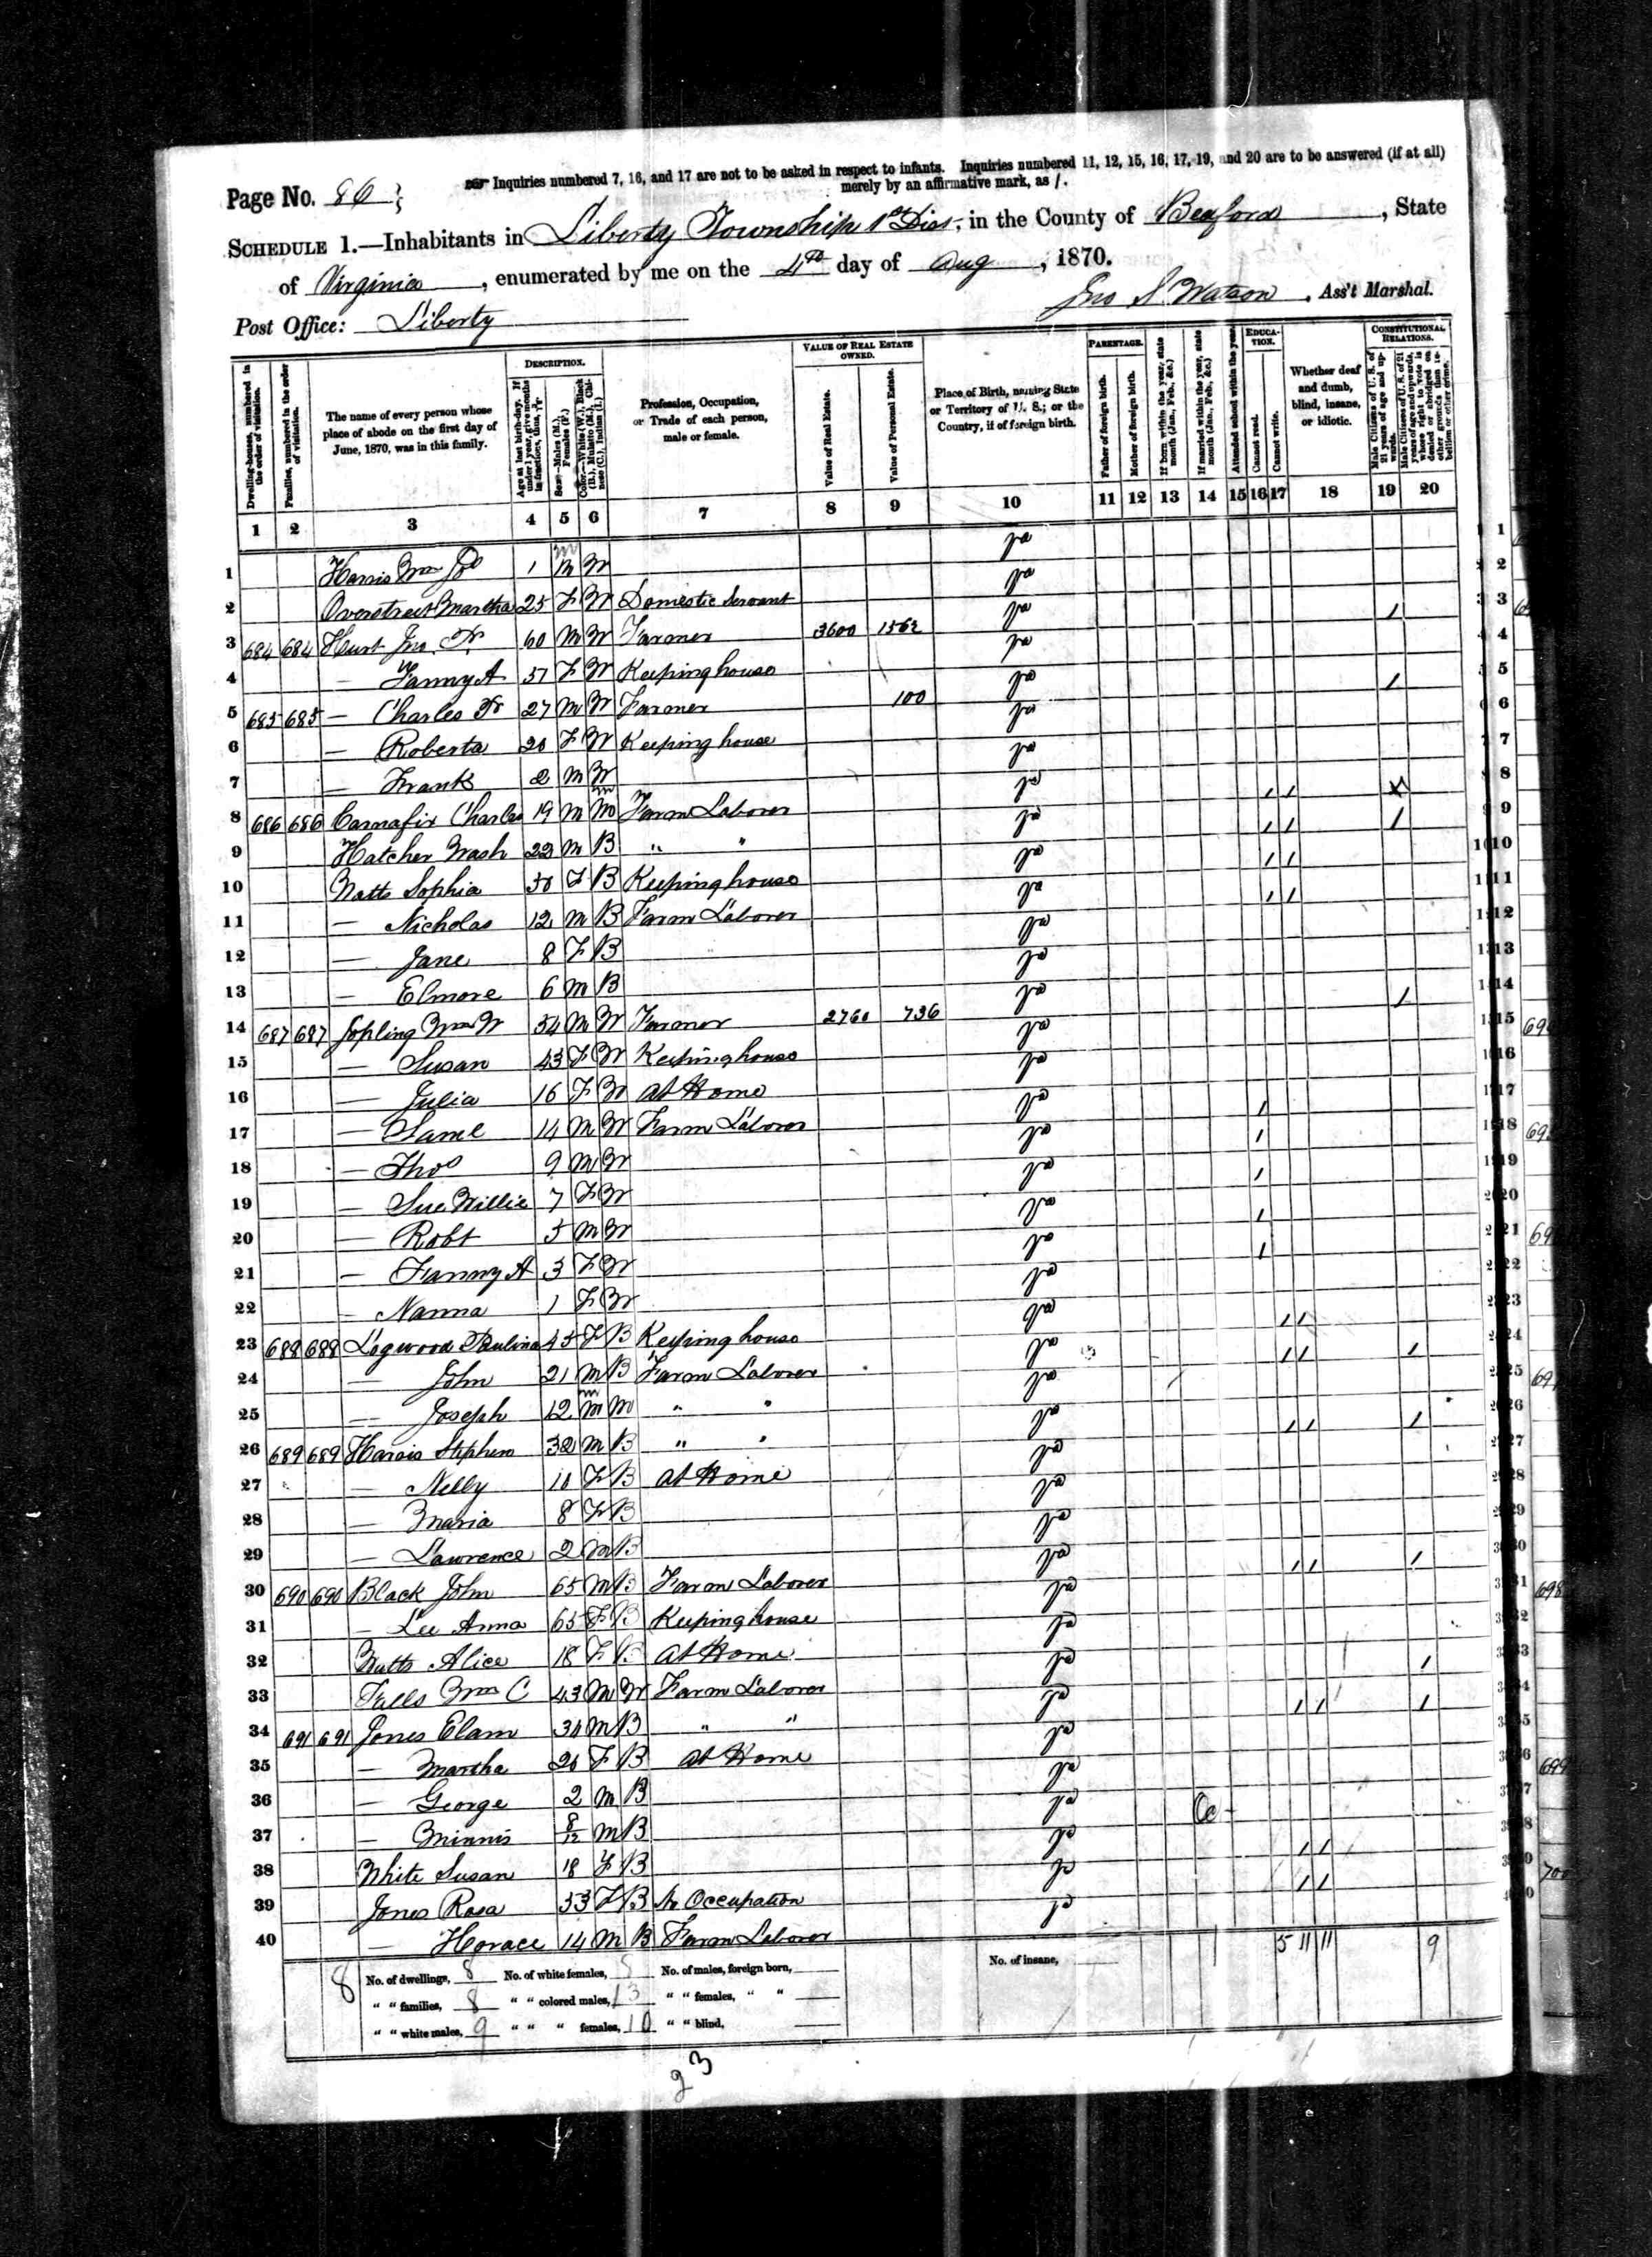 Page No. 86
Inquiries numbered 7, 16, and 17 are not to be asked in respect to infants. Inquiries numbered 11, 12, 15, 16, 17, 19, and 20 are to be answered (if at all)
merely by an affirmative mark, as /.
SCHEDULE 1.—Inhabitants in Liberty Township 1st Dist, in the County of Bedford, State
of Virginia, enumerated by me on the 4th day of Aug, 1870.
Post Office: Liberty
Jno S. Watson, Ass't Marshal.
DESCRIPTION.
VALUE OF REAL ESTATE OWNED.
PARENTAGE.
EDUCATION.
CONSTITUTIONAL RELATIONS.
Dwelling-houses, numbered in the order of visitation.
Families, numbered in the order of visitation.
The name of every person whose place of abode on the first day of June, 1870, was in this family.
Age at last birth-day. If under 1 year, give months in fractions, thus,
Sex.—Males (M.), Females (F.)
Color.—White (W.), Black (B.), Mulatto (M.), Chinese (C.), Indian (I.)
Profession, Occupation, or Trade of each person, male or female.
Value of Real Estate.
Value of Personal Estate.
Place of Birth, naming State or Territory of U. S.; or the Country, if of foreign birth.
Father of foreign birth.
Mother of foreign birth.
If born within the year, state month (Jan., Feb., &c.)
If married within the year, state month (Jan., Feb., &c.)
Attended school within the year.
Cannot read.
Cannot write.
Whether deaf and dumb, blind, insane, or idiotic.
Male Citizens of U. S. of 21 years of age and upwards.
Male Citizens of U. S. of 21 years of age and upwards, whose right to vote is denied or abridged on other grounds than rebellion or other crime.
1 2 3 4 5 6 7 8 9 10 11 12 13 14 15 16 17 18 19 20
1 Harris Wm Jos 1 M W Va
2 Overstreet Martha 25 F W Domestic Servant Va
3 684 684 Hurt Jno W 60 M W Farmer 3600 1562 Va /
4 — Fanny A 57 F W Keeping house Va
5 685 685 — Charles W 27 M W Farmer 100 Va /
6 — Roberta 20 F W Keeping house Va
7 — Frank 2 M W Va
8 686 686 Carnafix Charles 19 M M Farm Laborer Va / / X
9 Hatcher Wash 22 M B " " Va / / /
10 Watts Sophia 50 F B Keeping house Va / /
11 — Nicholas 12 M B Farm Laborer Va / /
12 — Jane 8 F B Va
13 — Elmore 6 M B Va
14 687 687 Jopling Wm W 54 M W Farmer 2760 736 Va /
15 — Susan 43 F W Keeping house Va
16 — Julia 16 F W At Home Va
17 — Saml 14 M W Farm Laborer Va /
18 — Thos 9 M W Va /
19 — Sue Willie 7 F W Va /
20 — Robt 5 M W Va /
21 — Fanny A 3 F W Va /
22 — Nanna 1 F W Va
23 688 688 Logwood Paulina 45 F B Keeping house Va / /
24 — John 21 M B Farm Laborer Va / / /
25 — Joseph 12 M M " " Va
26 689 689 Harris Stephen 32 M B " " Va / / /
27 — Nelly 10 F B At Home Va
28 — Maria 8 F B Va
29 — Lawrence 2 M B Va
30 690 690 Black John 65 M B Farm Laborer Va / / /
31 — Lee Anna 65 F B Keeping house Va
32 Watts Alice 18 F B At Home Va
33 Falls Wm C 43 M W Farm Laborer Va /
34 691 691 Jones Elam 30 M B " " Va / / /
35 — Martha 20 F B At Home Va
36 — George 2 M B Va
37 — Minnis 8/12 M B Va Oc
38 White Susan 18 F B Va / /
39 Jones Rosa 33 F B No Occupation Va / /
40 — Horace 14 M B Farm Laborer Va
5 11 11 9
8 No. of dwellings, 8 No. of white females, 8 No. of males, foreign born, No. of insane,
" " families, 8 " " colored males, 13 " " females, " "
" " white males, 9 " " " females, 10 " " blind,
93